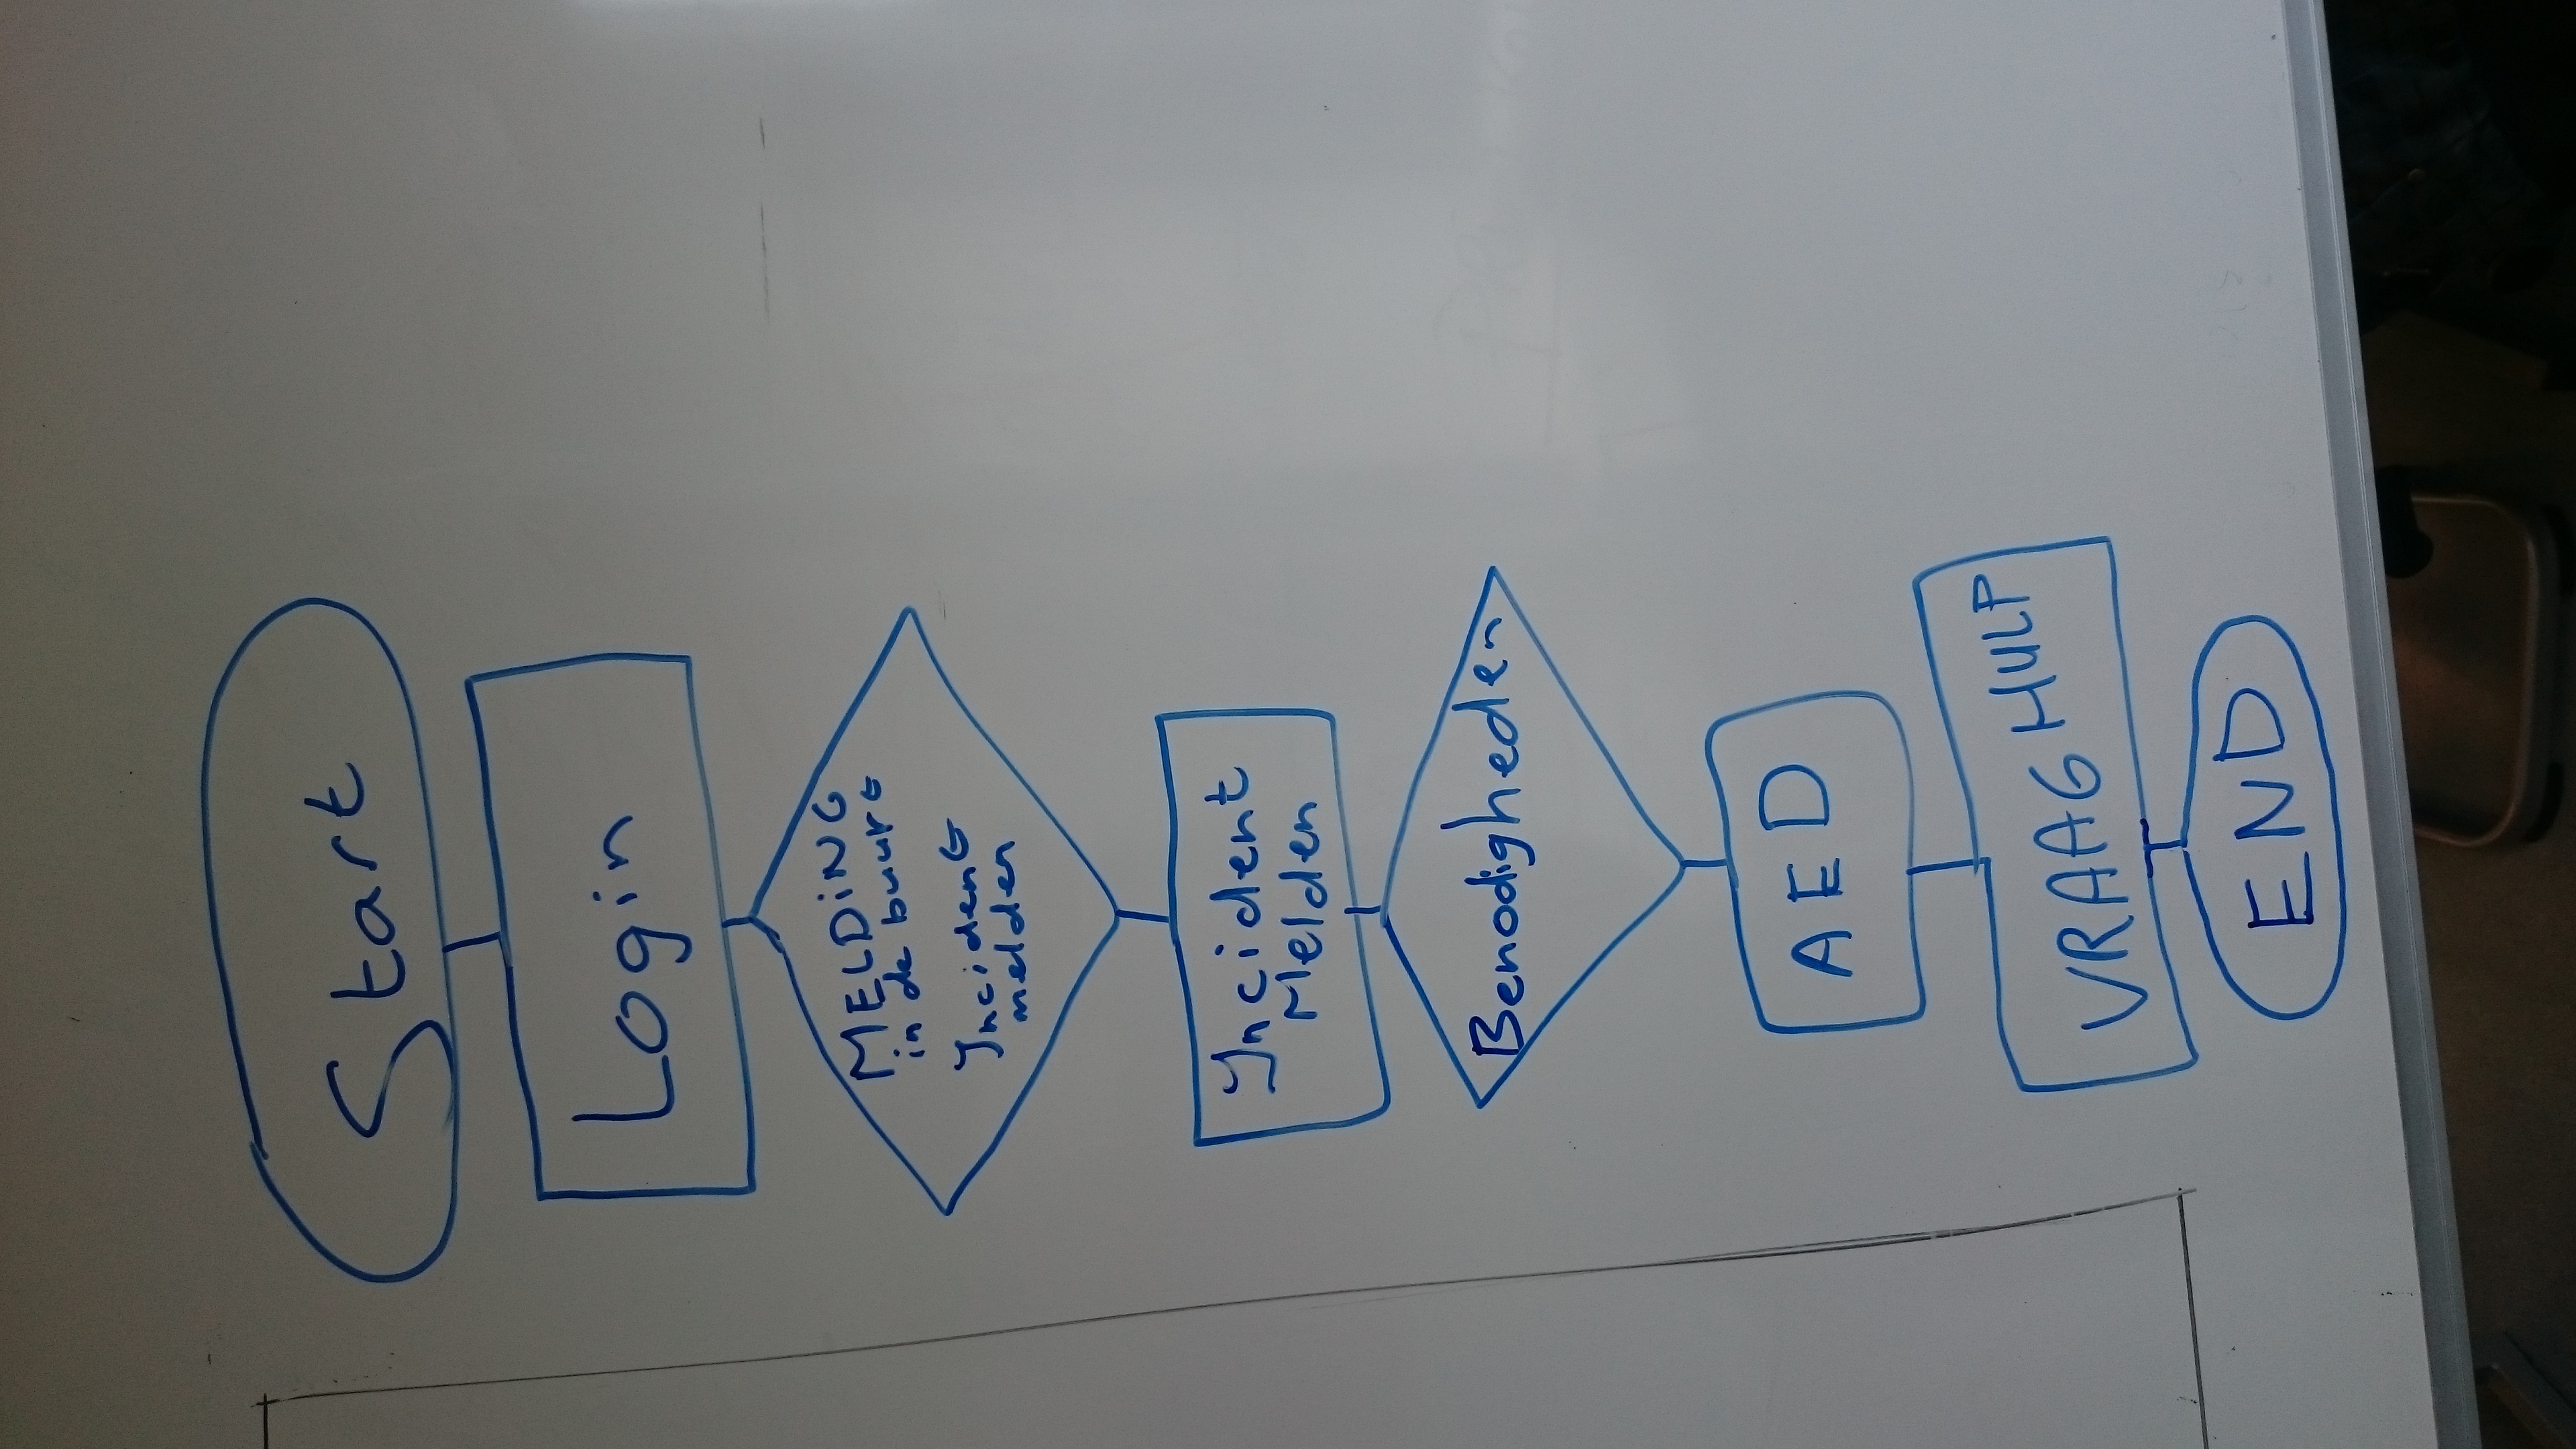 Start
Login
MELDING
in de buurt
Incident
melden
Incident
Melden
Benodigheden
AED
VRAAG HULP
END